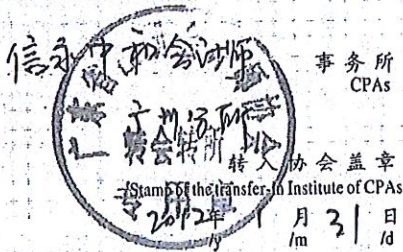 信永中和会计师 事务所
CPAs
广州分所
转会转所
转入协会盖章
Stamp of the transfer-in Institute of CPAs
2012年 1月 31日
/y /m /d